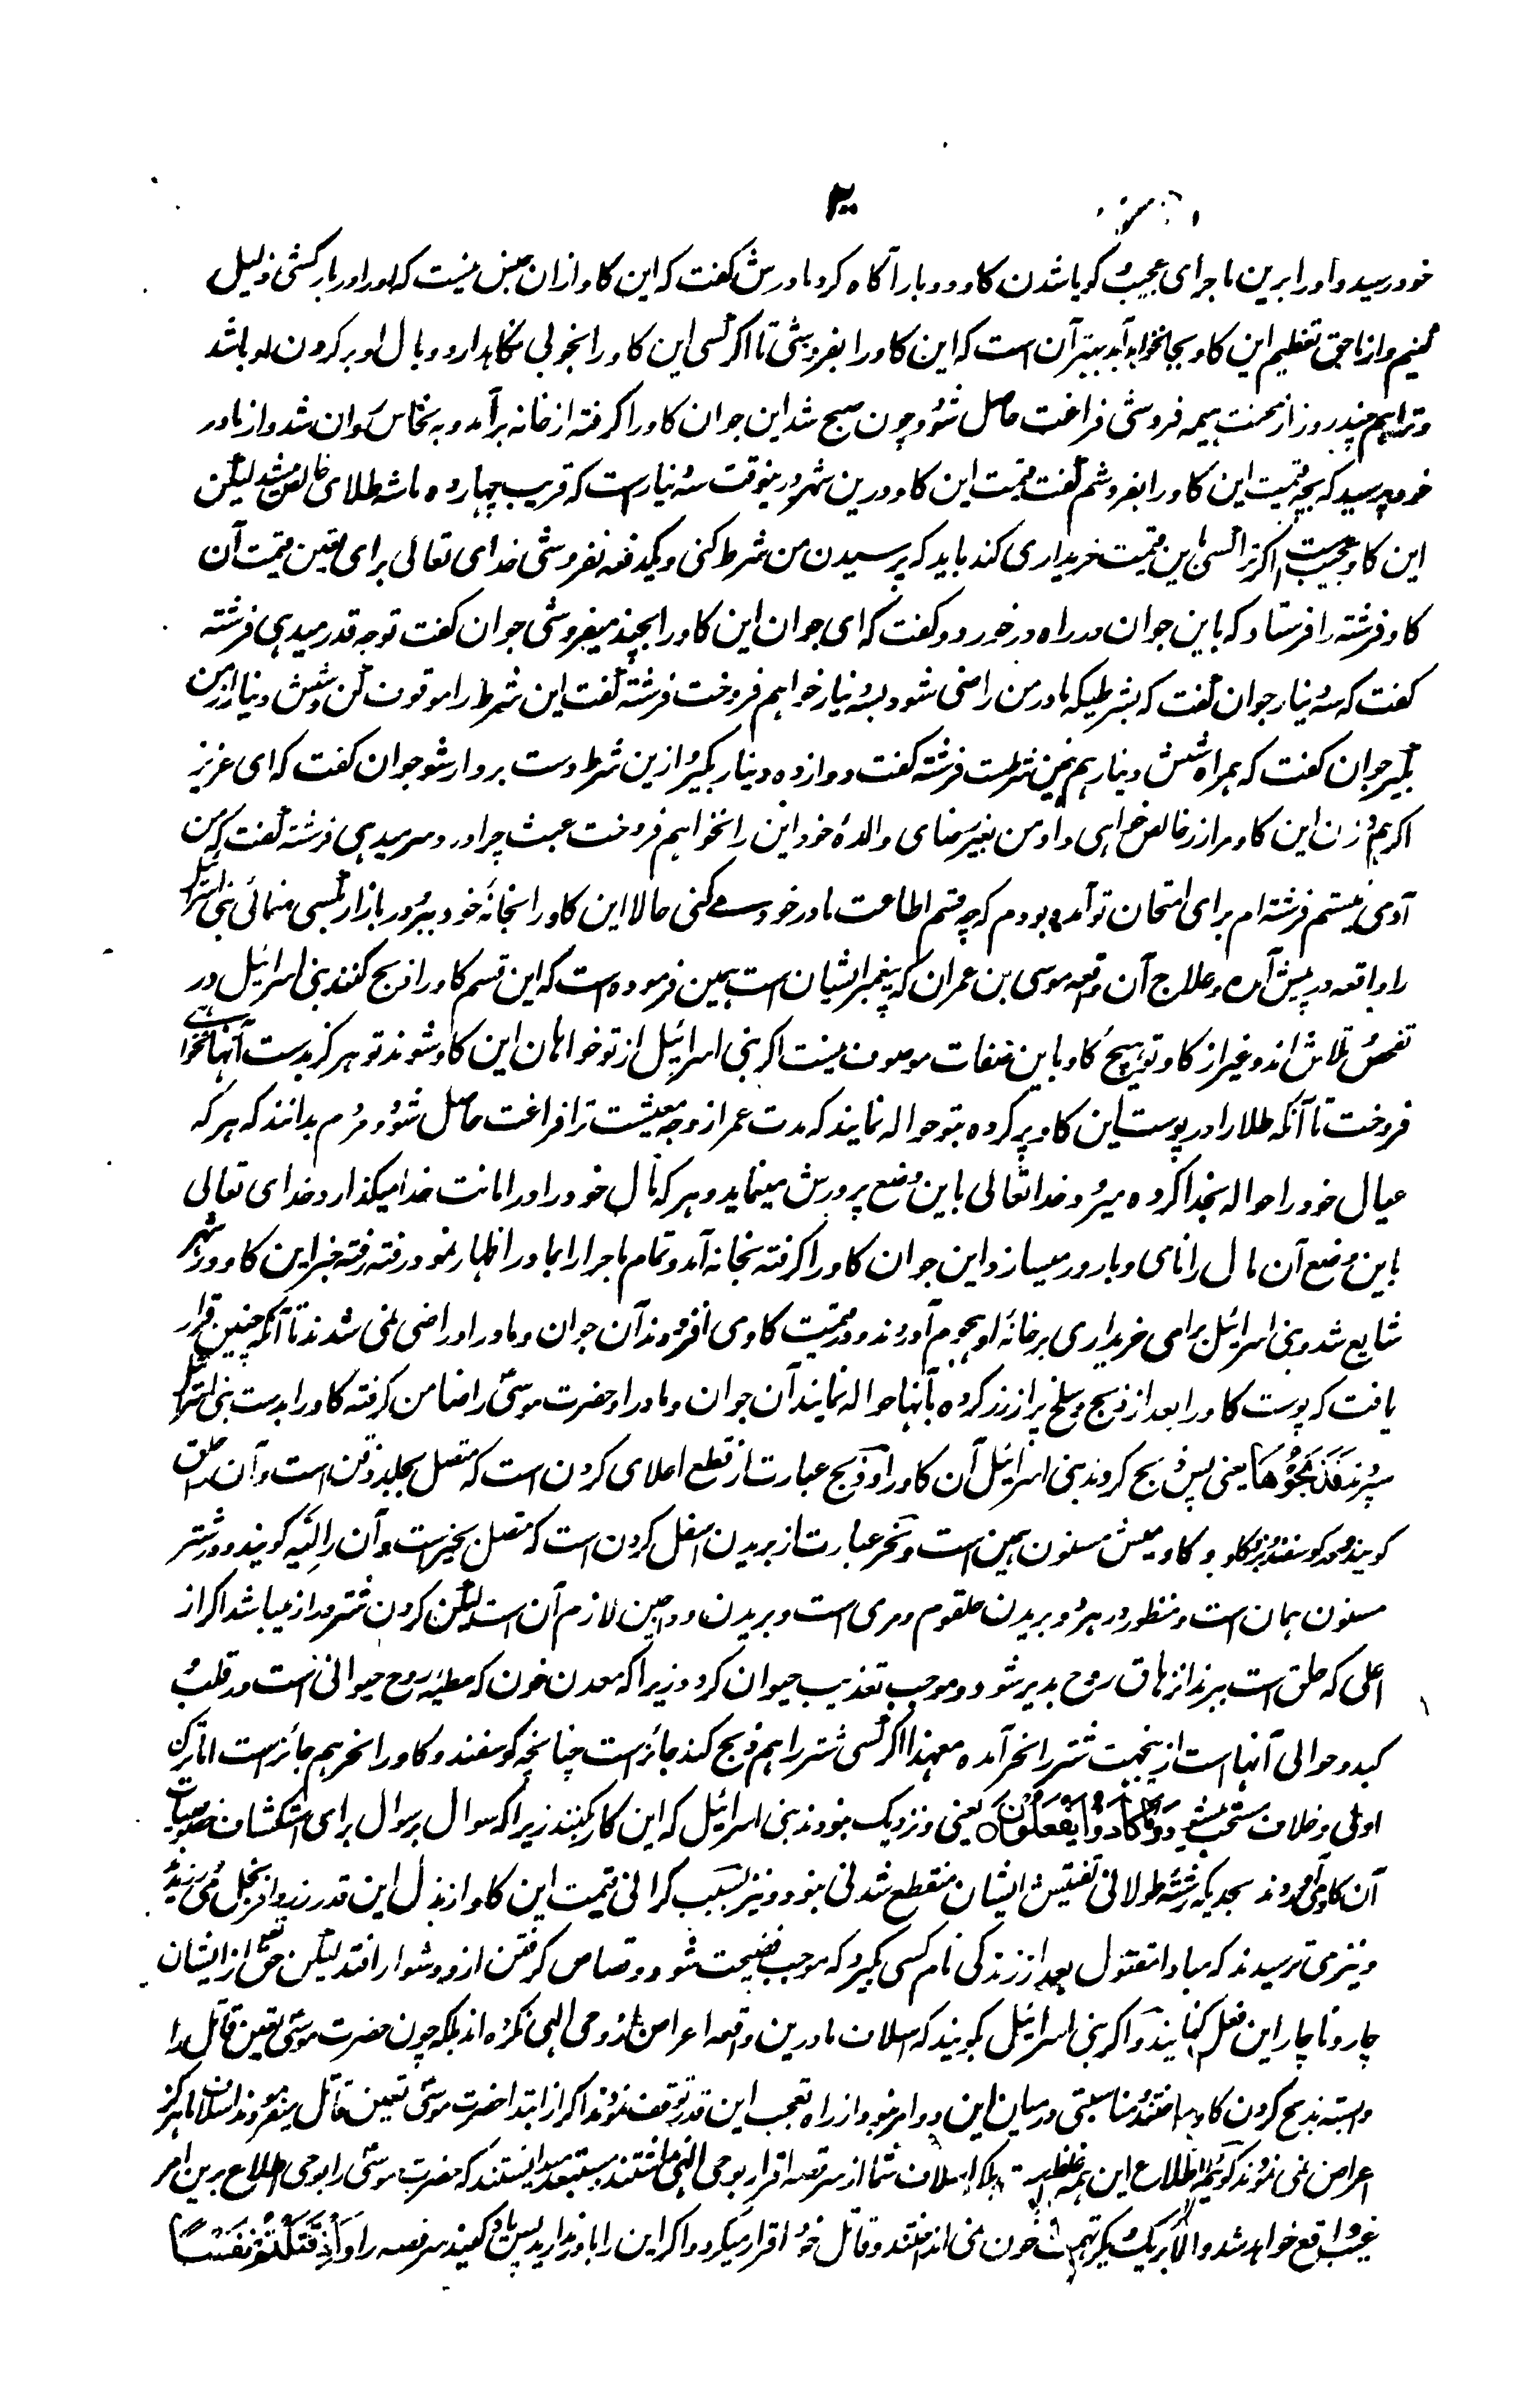 ۲
خود رسید و او را برین ماجرای عجیب گویا شدن گاو دو بار آگاه کرد مادرش گفت که این گاو از ان جنس نیست که او را در بارکشی ذلیل
کنیم و از ما حق تعظیم این گاو بجا نخواهد آمد بهتر آن است که این گاو را بفروشی تا اگر کسی این گاو را بخوبی نگاهدارد وبال او بر گردن او باشد
و ترا هم چند روز از محنت هیمه فروشی فراغت حاصل شود چون صبح شد این جوان گاو را گرفته از خانه برآمد و به نخاس روان شد و از مادر
خود پرسید که بچه قیمت این گاو را بفروشم گفت قیمت این گاو درین شهر درینوقت سه دینار است که قریب چهارده ماشه طلای خالص میشد لیکن
این گاو عجیب است اگر ترا کسی باین قیمت خریداری کند باید که پرسیدن من شرط کنی و یکدفعه نفروشی خدای تعالی برای تعین قیمت آن
گاو فرشته را فرستاد که باین جوان در راه در خورد و گفت که ای جوان این گاو را بچند میفروشی جوان گفت تو چه قدر میدهی فرشته
گفت که سه دینار جوان گفت که بشرطیکه مادر من راضی شود بسه دینار خواهم فروخت فرشته گفت این شرط را موقوف کن و شش دینار از من
بگیر جوان گفت که همراه شش دینار هم همین شرطست فرشته گفت دوازده دینار بگیر و ازین شرط دست بردار شو جوان گفت که ای عزیز
اگر هم وزن این گاو مرا زر خالص خواهی داد من بغیر رضای والدهٔ خود این را نخواهم فروخت عبث چرا درد سر میدهی فرشته گفت که من
آدمی نیستم فرشته ام برای امتحان تو آمده بودم که چه قسم اطاعت مادر خود مے کنی حالا این گاو را بخانهٔ خود ببر و در بازار بکسی منمائی بنی اسرائیل
را واقعه در پیش آمده و علاج آن واقعه موسی بن عمران که پیغمبر ایشان است همین فرموده است که این قسم گاو را ذبح کنند بنی اسرائیل در
تفحص و تلاش اند و غیر از گاو تو هیچ گاو باین صفات موصوف نیست اگر بنی اسرائیل از تو خواهان این گاو شوند تو هرگز بدست آنها نخواهے
فروخت تا آنکه طلا را در پوست این گاو پر کرده بتو حواله نمایند که مدت عمر از وجه معیشت ترا فراغت حاصل شود و مردم بدانند که هر که
عیال خود را حواله بخدا کرده میرود خدا تعالی باین وضع پرورش مینماید و هر که مال خود را در امانت خدا میگذارد خدای تعالی
باین وضع آن مال را نامی و بارور میسازد این جوان گاو را گرفته بخانه آمد و تمام ماجرا را بمادر اظهار نمود رفته رفته خبر این گاو در شهر
شایع شد و بنی اسرائیل برای خریداری بر خانهٔ او هجوم آوردند و در قیمت گاو می افزودند آن جوان و مادر او راضی نمی شدند تا آنکه چنین قرار
یافت که پوست گاو را بعد از ذبح و سلخ پر از زر کرده بآنها حواله نمایند آن جوان و مادر او حضرت موسیٰ را ضامن گرفته گاو را بدست بنی اسرائیل
سپردند فَذَبَحُوْهَا یعنی پس ذبح کردند بنی اسرائیل آن گاو را و ذبح عبارت از قطع اعلای گردن است که متصل بجلد ذقن است و آن را حلق
گویند و در گوسفند و بز و گاو و گاومیش مسنون همین است و نحر عبارت از بریدن اسفل گردن است که متصل بنحر است و آن را لَبّه گویند و در شتر
مسنون همان است و منظور در هر دو بریدن حلقوم و مری است و بریدن ودجین لازم آن است لیکن گردن شتر دراز میباشد اگر از
اعلی که حلق است ببرند ازهاق روح بدیر شود و موجب تعذیب حیوان گردد زیرا که معدن خون که مطیه روح حیوانی است در قلب و
کبد و حوالی آنها است ازینجهت شتر را نحر آمده معهذا اگر کسی شتر را هم ذبح کند جائز است چنانچه گوسفند و گاو را نحر هم جائز است اما ترک
اولی و خلاف مستحب میشود وَمَا كَادُوْا يَفْعَلُوْنَ یعنی و نزدیک نبودند بنی اسرائیل که این کار بکنند زیرا که سوال بر سوال برای استکشاف خصوصیات
آن گاو می آوردند بحدیکه رشتهٔ طولانی تفتیش ایشان منقطع شدنی نبود و نیز بسبب گرانی قیمت این گاو از بذل این قدر زر وافر بخل می ورزیدند
و نیز می ترسیدند که مبادا مقتول بعد از زندگی نام کسی بگیرد که موجب فضیحت شود و قصاص گرفتن ازو دشوار افتد لیکن حق تعالی از ایشان
چار و ناچار این فعل کنانید و اگر بنی اسرائیل بگویند که اسلاف ما درین واقعه اعراض از وحی الهی نکرده اند بلکه چون حضرت موسیٰ تعین قاتل را
وابسته بذبح کردن گاو ساختند و مناسبتی درمیان این دو امر نبود از راه تعجب این قدر توقف نمودند اگر از ابتدا حضرت موسیٰ تعیین قاتل میفرمودند اسلاف ما هرگز
اعراض نمی نمودند گوئیم اطلاع این همه غلط است بلکه اسلاف شما از سر قصه اقرار بوحی الهی نداشتند و مستبعد میدانستند که حضرت موسیٰ را بوحی اطلاع برین امر
غیب واقع خواهد شد والا بر یک دیگر تهمت خون نمی انداختند و قاتل خود اقرار میکرد و اگر این را باور ندارید پس یاد کنید سر قصه را وَاِذْ قَتَلْتُمْ نَفْسًا